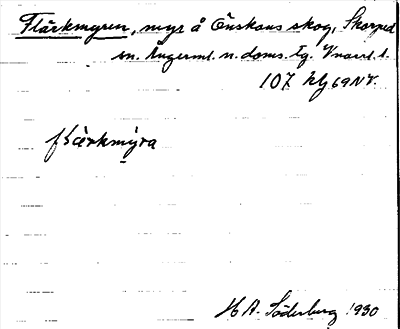 Flärkmyren, myr å Önskans skog, Skorped
sn. Ångerml. n. doms. tg.
107 hg 69 NV.
flärkmyra
H A. Söderberg 1930